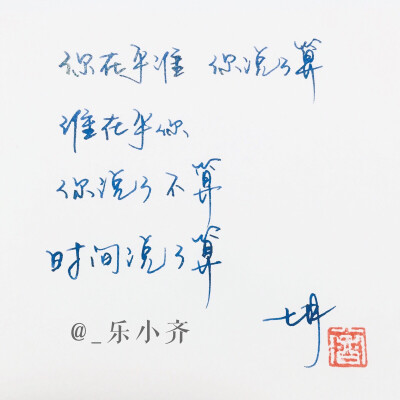 你在乎谁 你说了算
谁在乎你
你说了不算
时间说了算
@_乐小齐
七月